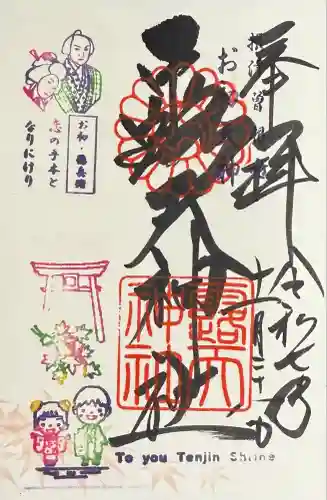 奉拝
令和七年
十一月二十日
お初天神
露天神社
露天
神社
お初・徳兵衛
恋の手本と
なりにけり
To you Tenjin Shrine